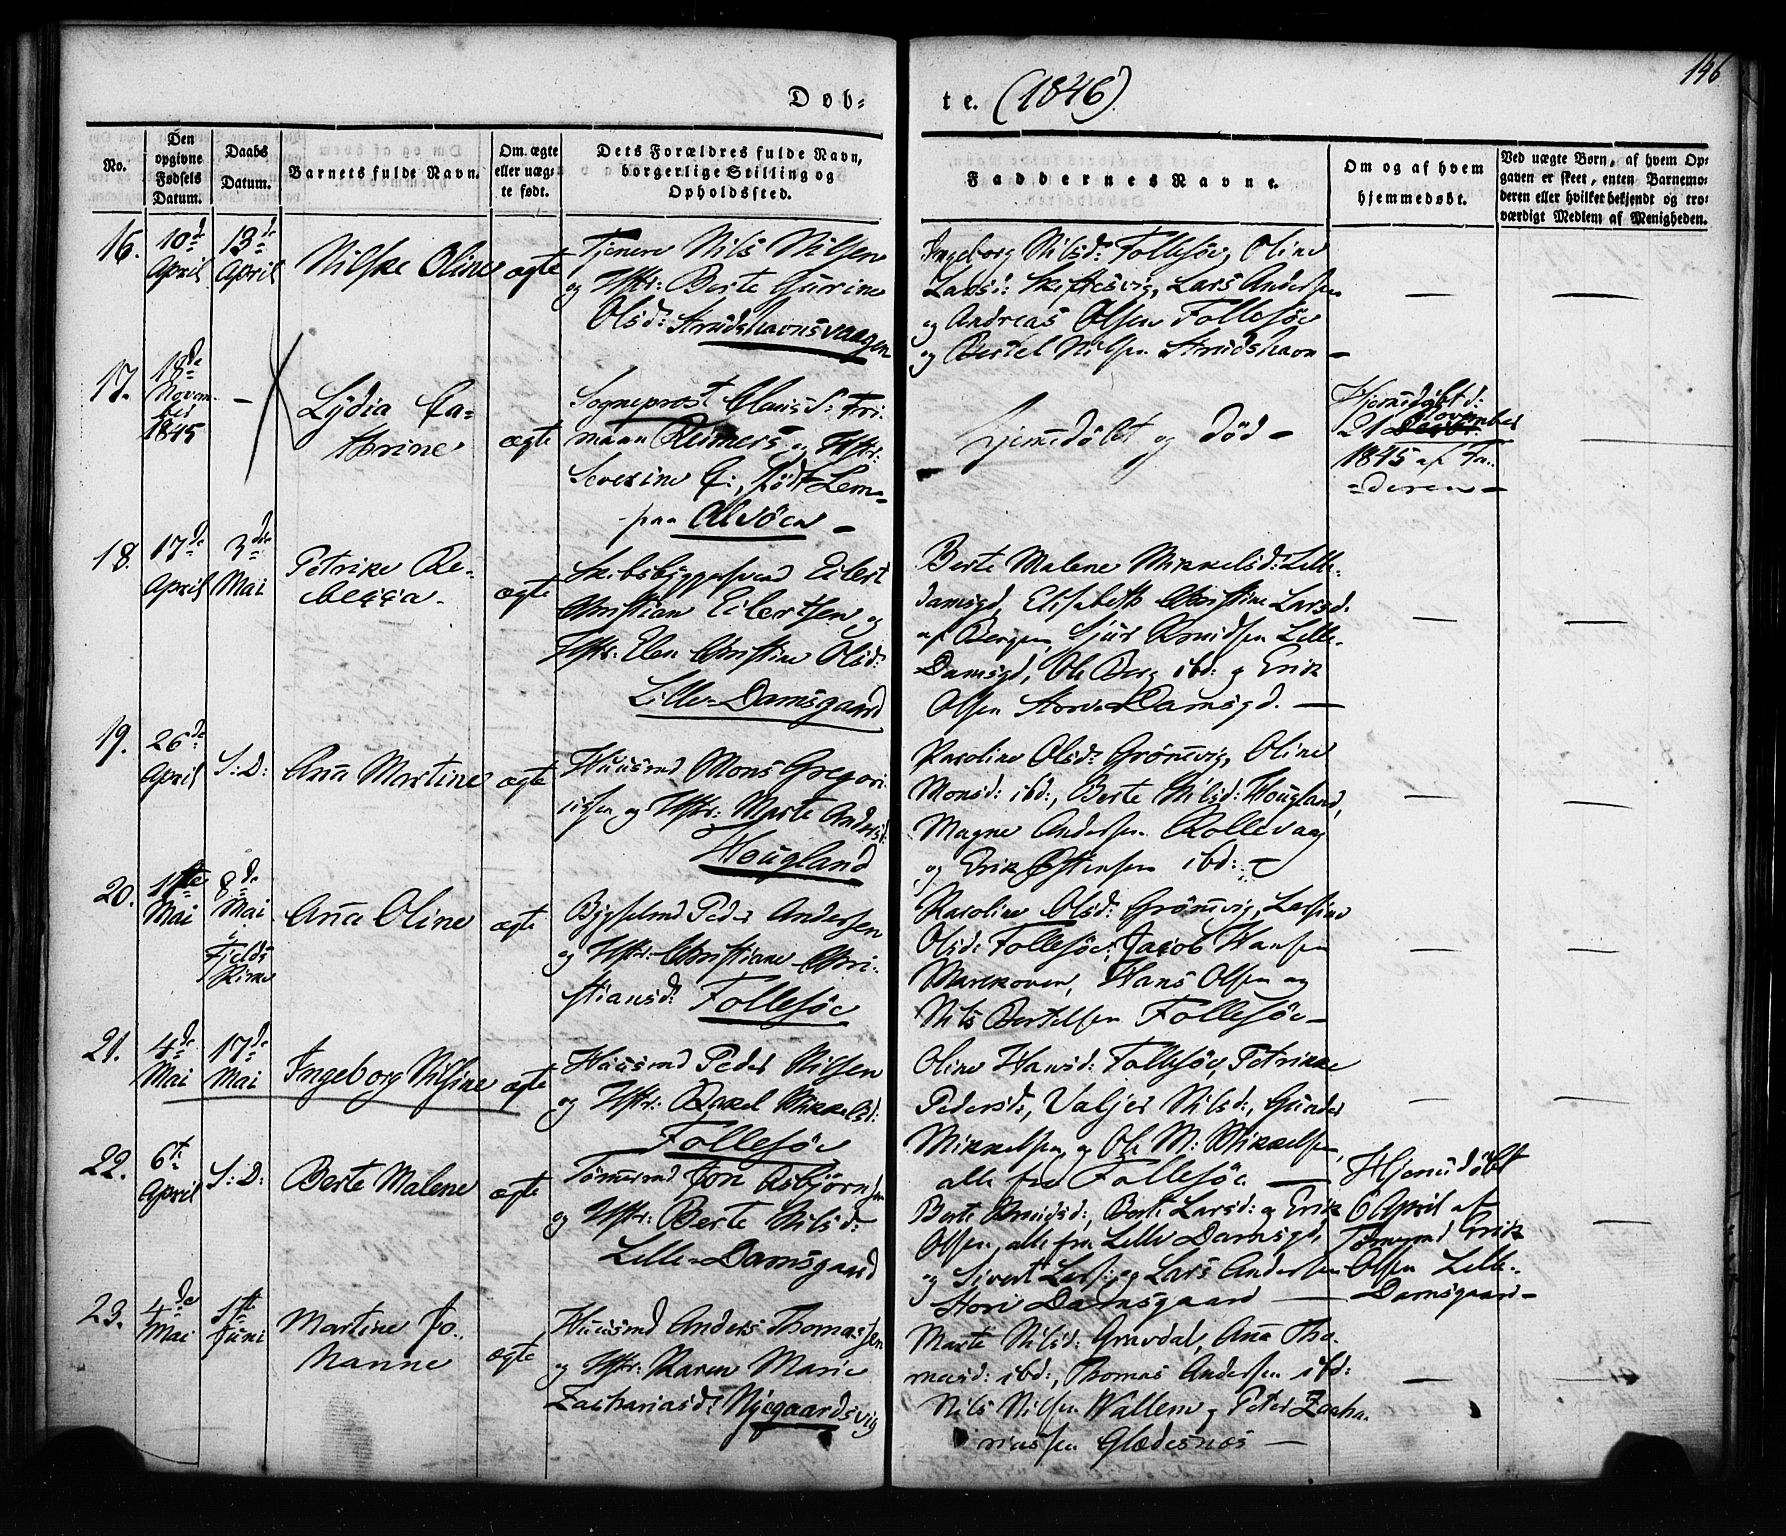 146
Døb-
te. (1846)
No.
Den
opgivne
Fødsels
Datum.
Daabs
Datum.
Barnets fulde Navn.
Om ægte
eller uæg-
te født.
Dets Forældres fulde Navn,
borgerlige Stilling og
Opholdssted.
Faddernes Navne.
Om og af hvem
hjemmedøbt.
Ved uægte Børn, af hvem Op-
gaven er skeet, enten Barnemo-
deren eller hvilket bekjendt og tro-
værdigt Medlem af Menigheden.
16.
10de
April
13de
April
Nilske Oline
ægte
Tjener Nils Nilsen
og Hstr: Berte Gurine
Olsd: Strudshavnsvaagen
Ingeborg Nilsd: Follesøe, Oline
Larsd: Skiftesvig, Lars Andersen
og Andreas Olsen Follesøe
og Bertel Nilsen Strudshavn –
—
—
17.
18de
Novem-
ber
1845
–
Lydia Ca-
thrine
ægte
Sogneprost Claus D: Fri-
mann Reimers og Hstr:
Severine C:, født Lem-
Alvøen –
Hjemdøbt og død –
Hjemdøbt d:
21 November
1845 af Fa-
deren –
18.
17de
April
3die
Mai
Petrike Re-
becca.
ægte
Skibsbyggersvend Eilert
Christian Eilertsen og
Hstr: Elen Christine Olsd:
Lille-Damsgaard
Berte Malene Mikkelsd: Lille-
damsgd, Elisabeth Christine Larsd:
af Bergen, Sjur Knudsen Lille-
Damsgd, Ole Berg ibd: og Erik
Olsen Store Damsgd. —
—
—
19.
26de
April
S: D:
Ana Martine
ægte
Huusmd Mons Gregori-
ussen og Hstr: Marte Andersd:
Hougland
Karoline Olsd: Grønevig, Oline
Monsd: ibd:, Berte Nilsd: Hougland,
Magne Andersen Rollevaag
og Erik Østensen ibd:
—
—
20.
1ste
Mai
8de
Mai
i
Fjelds
Kirke
Ana Oline
ægte
Bygselmd Peder Andersen
og Hstr: Christiane Chri-
stiansd: Follesøe
Karoline Olsd: Grønevig, Larsine
Olsd: Follesøe, Jacob Hansen
Marikoven, Hans Olsen og
Nils Bertelsen Follesøe –
—
—
21.
4de
Mai
17de
Mai
Ingeborg Nilsine
ægte
Huusmd Peder Nilsen
og Hstr: Rakel Mikkelsd:
Follesøe
Oline Hansd: Follesøe, Petrikke
Pedersd:, Valjer Nilsd:, Gunder
Mikkelsen og Ole M: Mikkelsen,
alle fra Follesøe —
—
—
22.
6te
April
S: D:
Berte Malene
ægte
Tømmermd Jon Asbjørnsen
og Hstr: Berte Nilsd:
Lille-Damsgaard
Berte Knudsd:, Berte Larsd: og Erik
Olsen, alle fra Lille Damsgd,
og Sivert Lars: og Lars Andersen
Store Damsgaard —
Hjemdøbt
6 April af
Tømrmd Erik
Olsen Lille-
Damsgaard –
—
23.
4de
Mai
1ste
Juni
Martine Jo-
hanne
ægte
Huusmd Anders Thomassen
og Hstr: Karen Marie
Zachariasd: Nygaardsvig
Marte Nilsd: Gravdal, Ana Tho-
masd: ibd:, Thomas Andersen ibd:
Nils Nilsen Wallem og Peter Zacha-
riassen Glædesnøs —
—
—